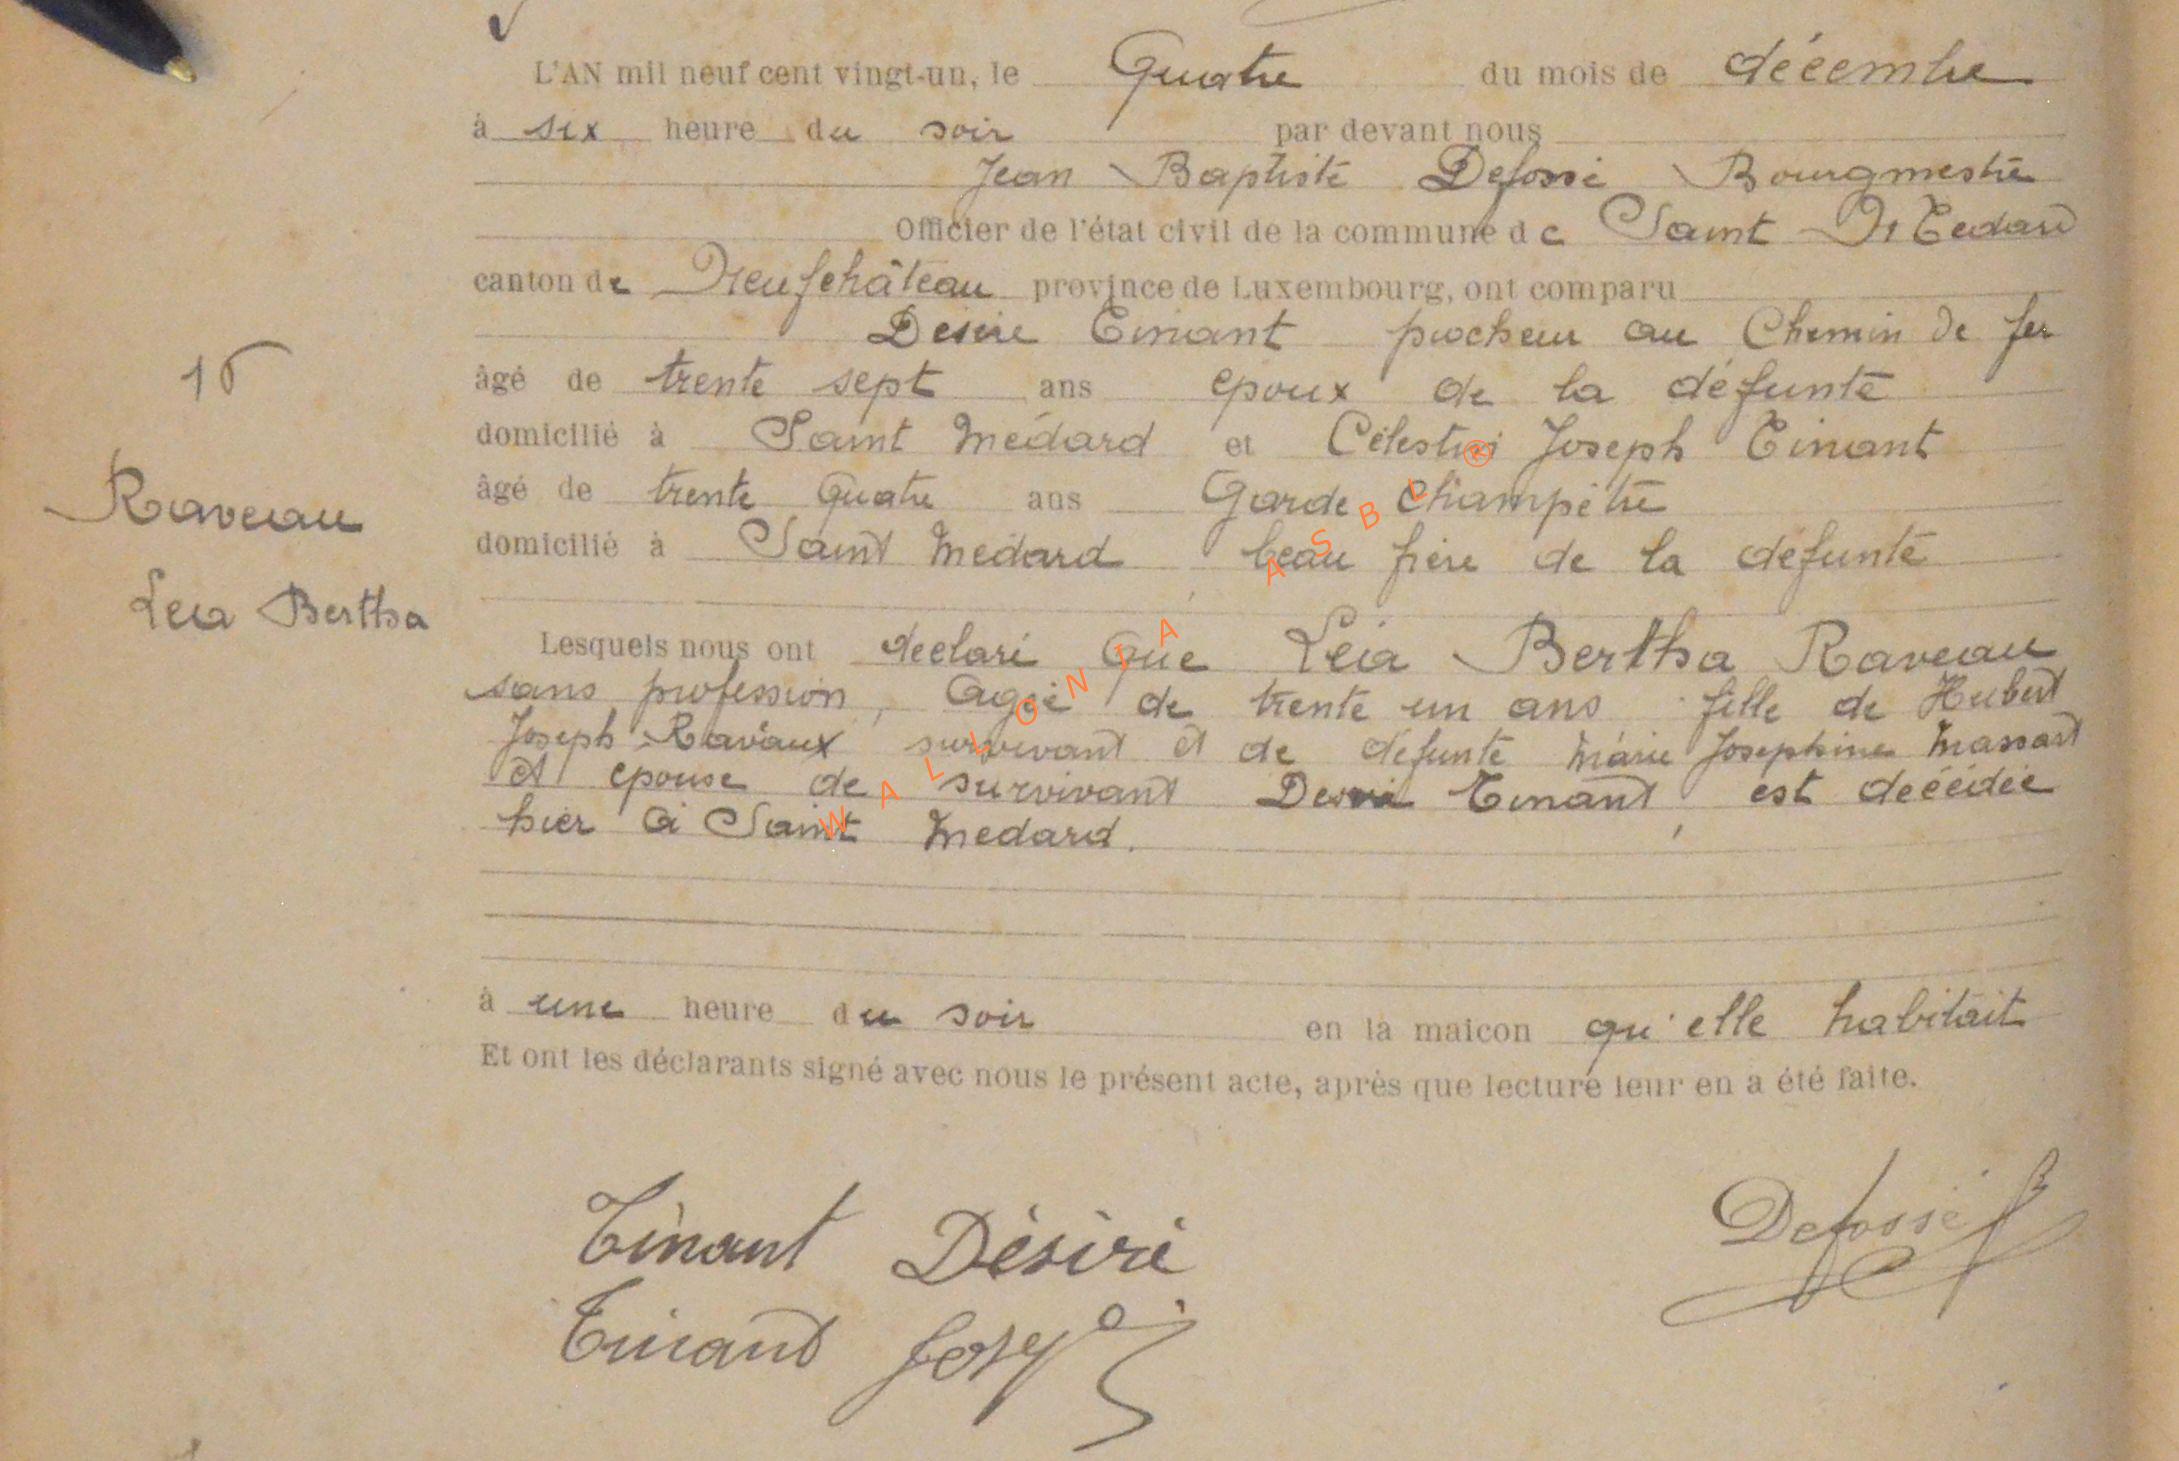 L'AN mil neuf cent vingt-un, le Quatre du mois de décembre
à six heure du soir par devant nous
Jean Baptiste Defossé Bourgmestre
Officier de l'état civil de la commune de Saint Médard
canton de Neufchâteau province de Luxembourg, ont comparu
Désiré Tinant piocheur au Chemin de fer
âgé de trente sept ans epoux de la défunte
domicilié à Saint Médard et Célestin Joseph Tinant
âgé de trente Quatre ans Garde Champêtre
domicilié à Saint Médard beau frère de la défunte
16
Raveau
Leia Bertha
Lesquels nous ont declaré Que Leia Bertha Raveau
sans profession, Agée de trente un ans fille de Hubert
Joseph Ravaux survivant et de défunte Marie Josephine Massart
et epouse de survivant Desiré Tinant, est décédée
hier à Saint Medard.
à une heure du soir en la maicon qu'elle habitait
Et ont les déclarants signé avec nous le présent acte, après que lecture leur en a été faite.
Tinant Désiré
Defossé
Tinant Joseph
WALLONIA ASBL ®